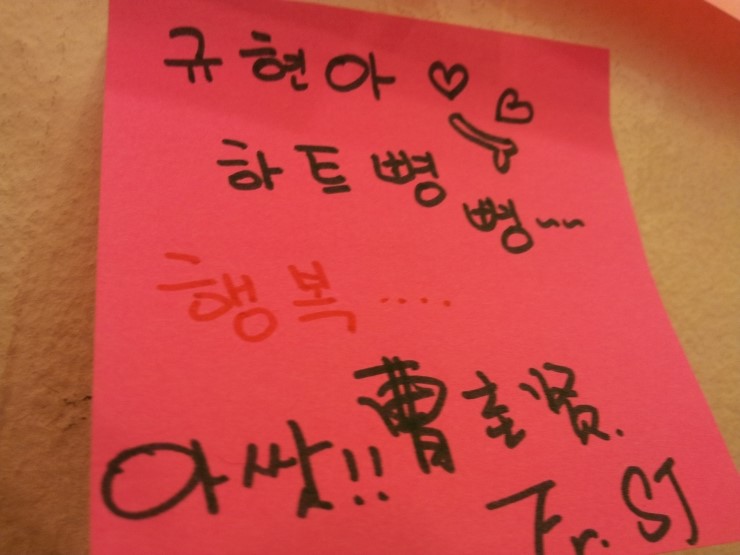 규현아 ♡♡
하트뿅
뿅~~
행복....
아싸!! 曺圭贤.
Fr. SJ